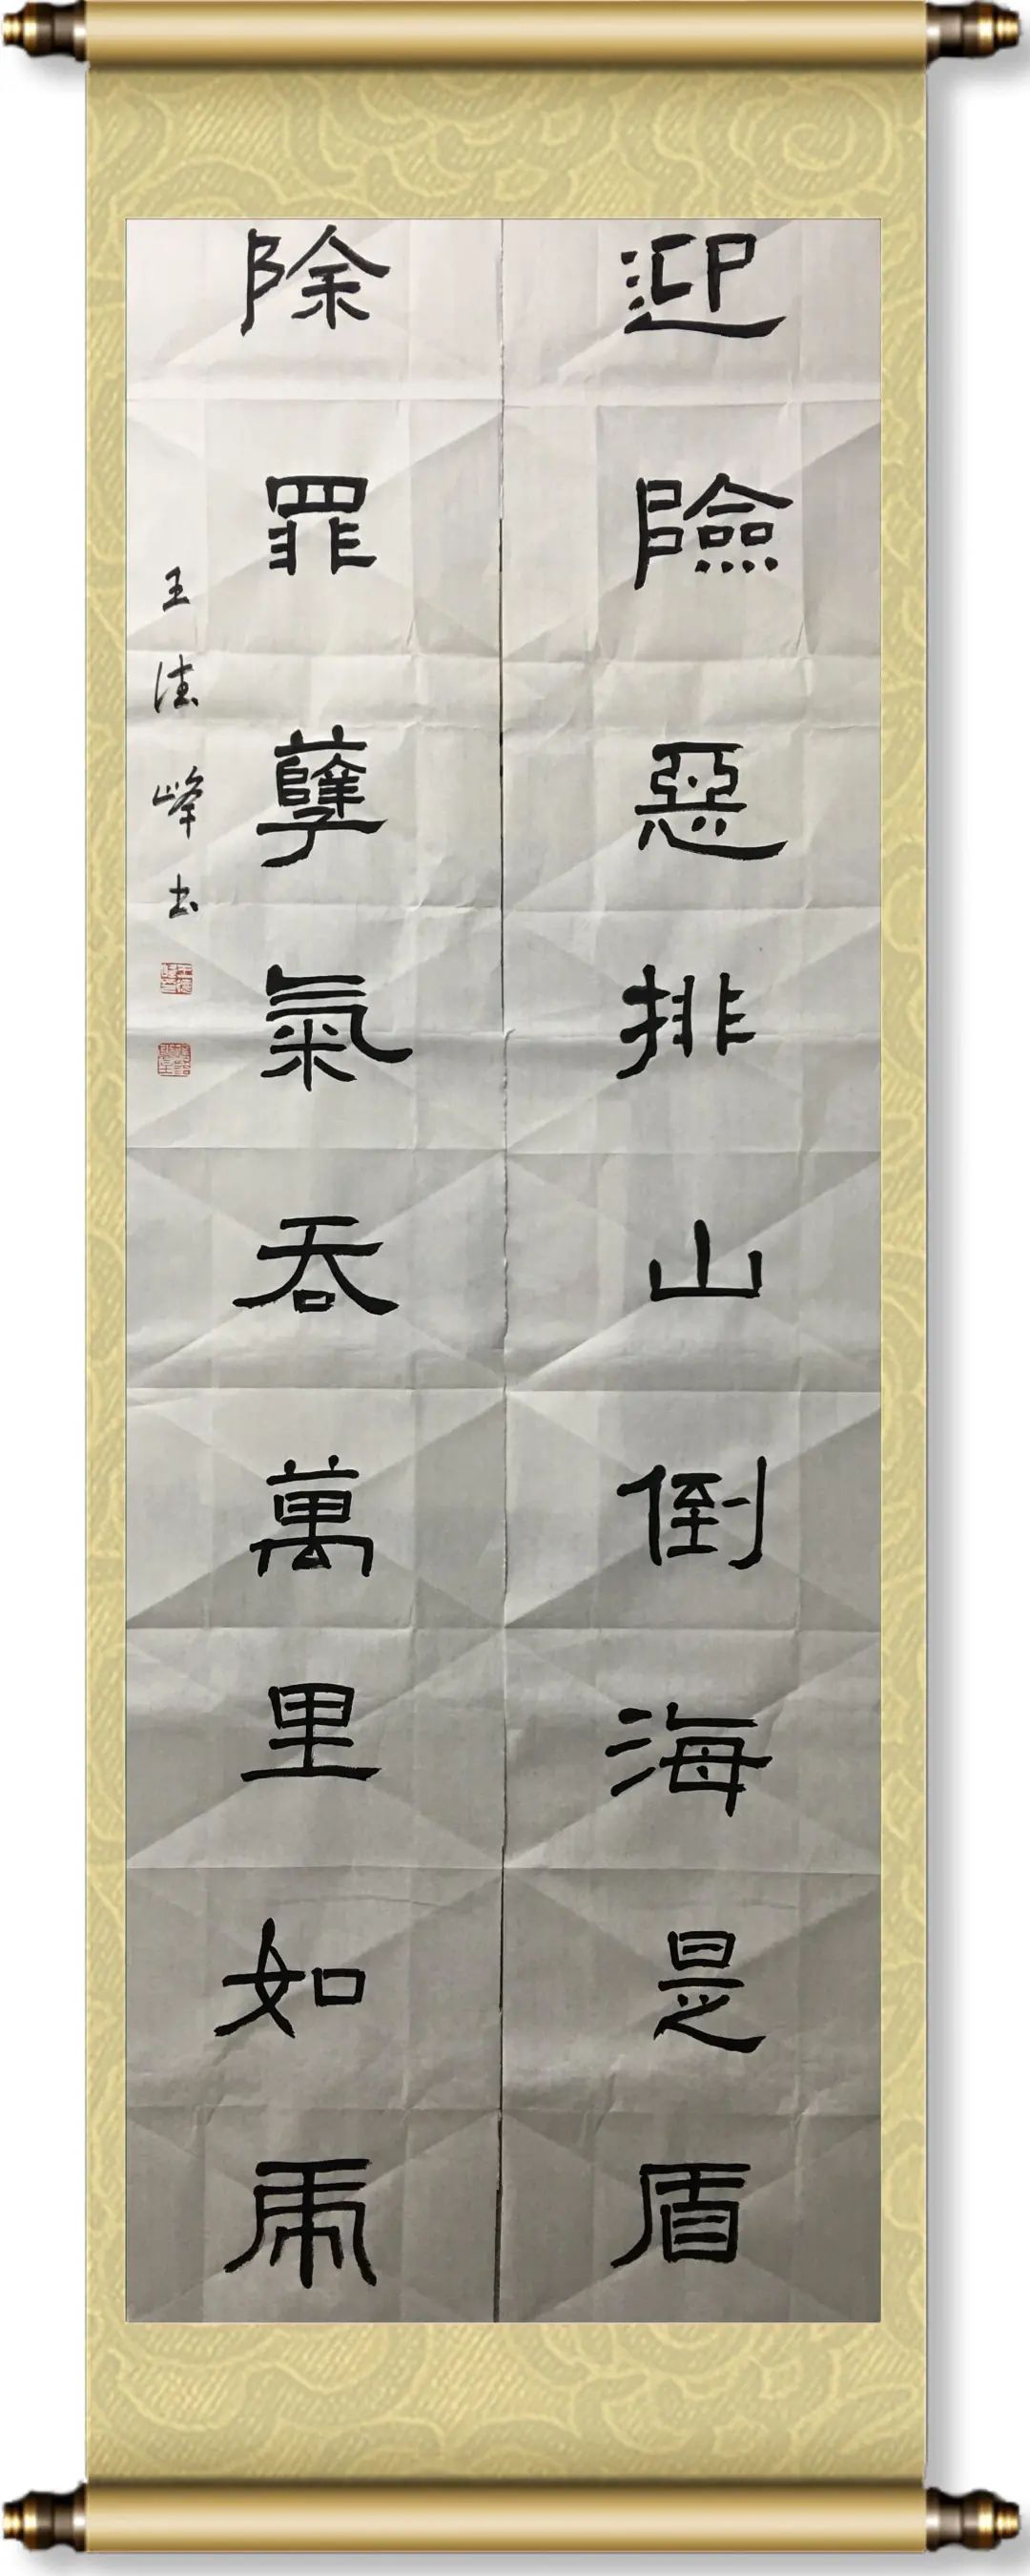 迎險惡排山倒海是盾
除罪孽氣吞萬里如虎
王德峰书